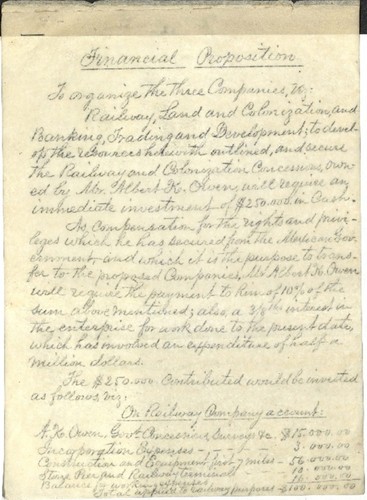 Financial Proposition
To organize the three Companies, viz:
Railway, Land and Colonization, and
Banking, Trading and Development; to devel-
op the resources herewith outlined, and secure
the Railway and Colonization Concessions, own-
ed by Mr. Albert K. Owen, will require an
immediate investment of $250.000. in Cash.
As Compensation for the rights and privi-
leges which he has secured from the Mexican Gov-
ernment, and which it is the purpose to trans-
fer to the proposed Companies, Mr. Albert K. Owen
will require the payment to him of 10% of the
sum above mentioned; also a 3/8ths interest in
the enterprise for work done to the present date,
which has involved an expenditure of half a
million dollars.
The $250.000. Contributed would be invested
as follows, viz;
On Railway Company account:
A. K. Owen, Govt. Concessions, Surveys &c. $15.000.00
Incorporation Expenses 3.000.00
Construction and Equipment first miles 56.000.00
Pier and Railway terminal 10.000.00
Balance for working
Total applied to railway purposes $100.000.00